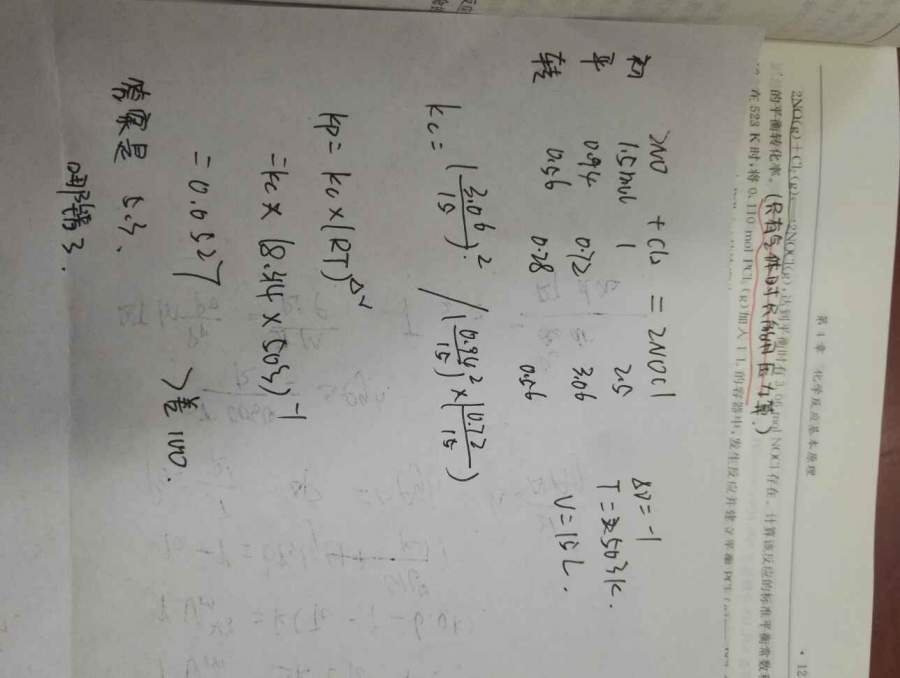 第4章 化学反应基本原理
· 12
2NO(g)+Cl₂(g)══2NOCl(g),达到平衡时有3.06 mol NOCl存在。计算该反应的标准平衡常数
的平衡转化率。(只有气体时只能用压力算。)
在 523 K时,将0.110 mol PCl₅(g)加入1 L的容器中,发生反应并建立平衡PCl
2NO + Cl₂ = 2NOCl
初 1.5mol 1 2.5
平 0.94 0.72 3.06
转 0.56 0.28 0.56
ΔV=-1
T=503K.
V=15L.
Kc= (3.06/15)² / (0.94/15)²×(0.72/15)
Kp= Kc×(RT)^ΔV
=Kc×(8.314×503)⁻¹
=0.0527
>差100.
答案是 5.3.
哪错了.